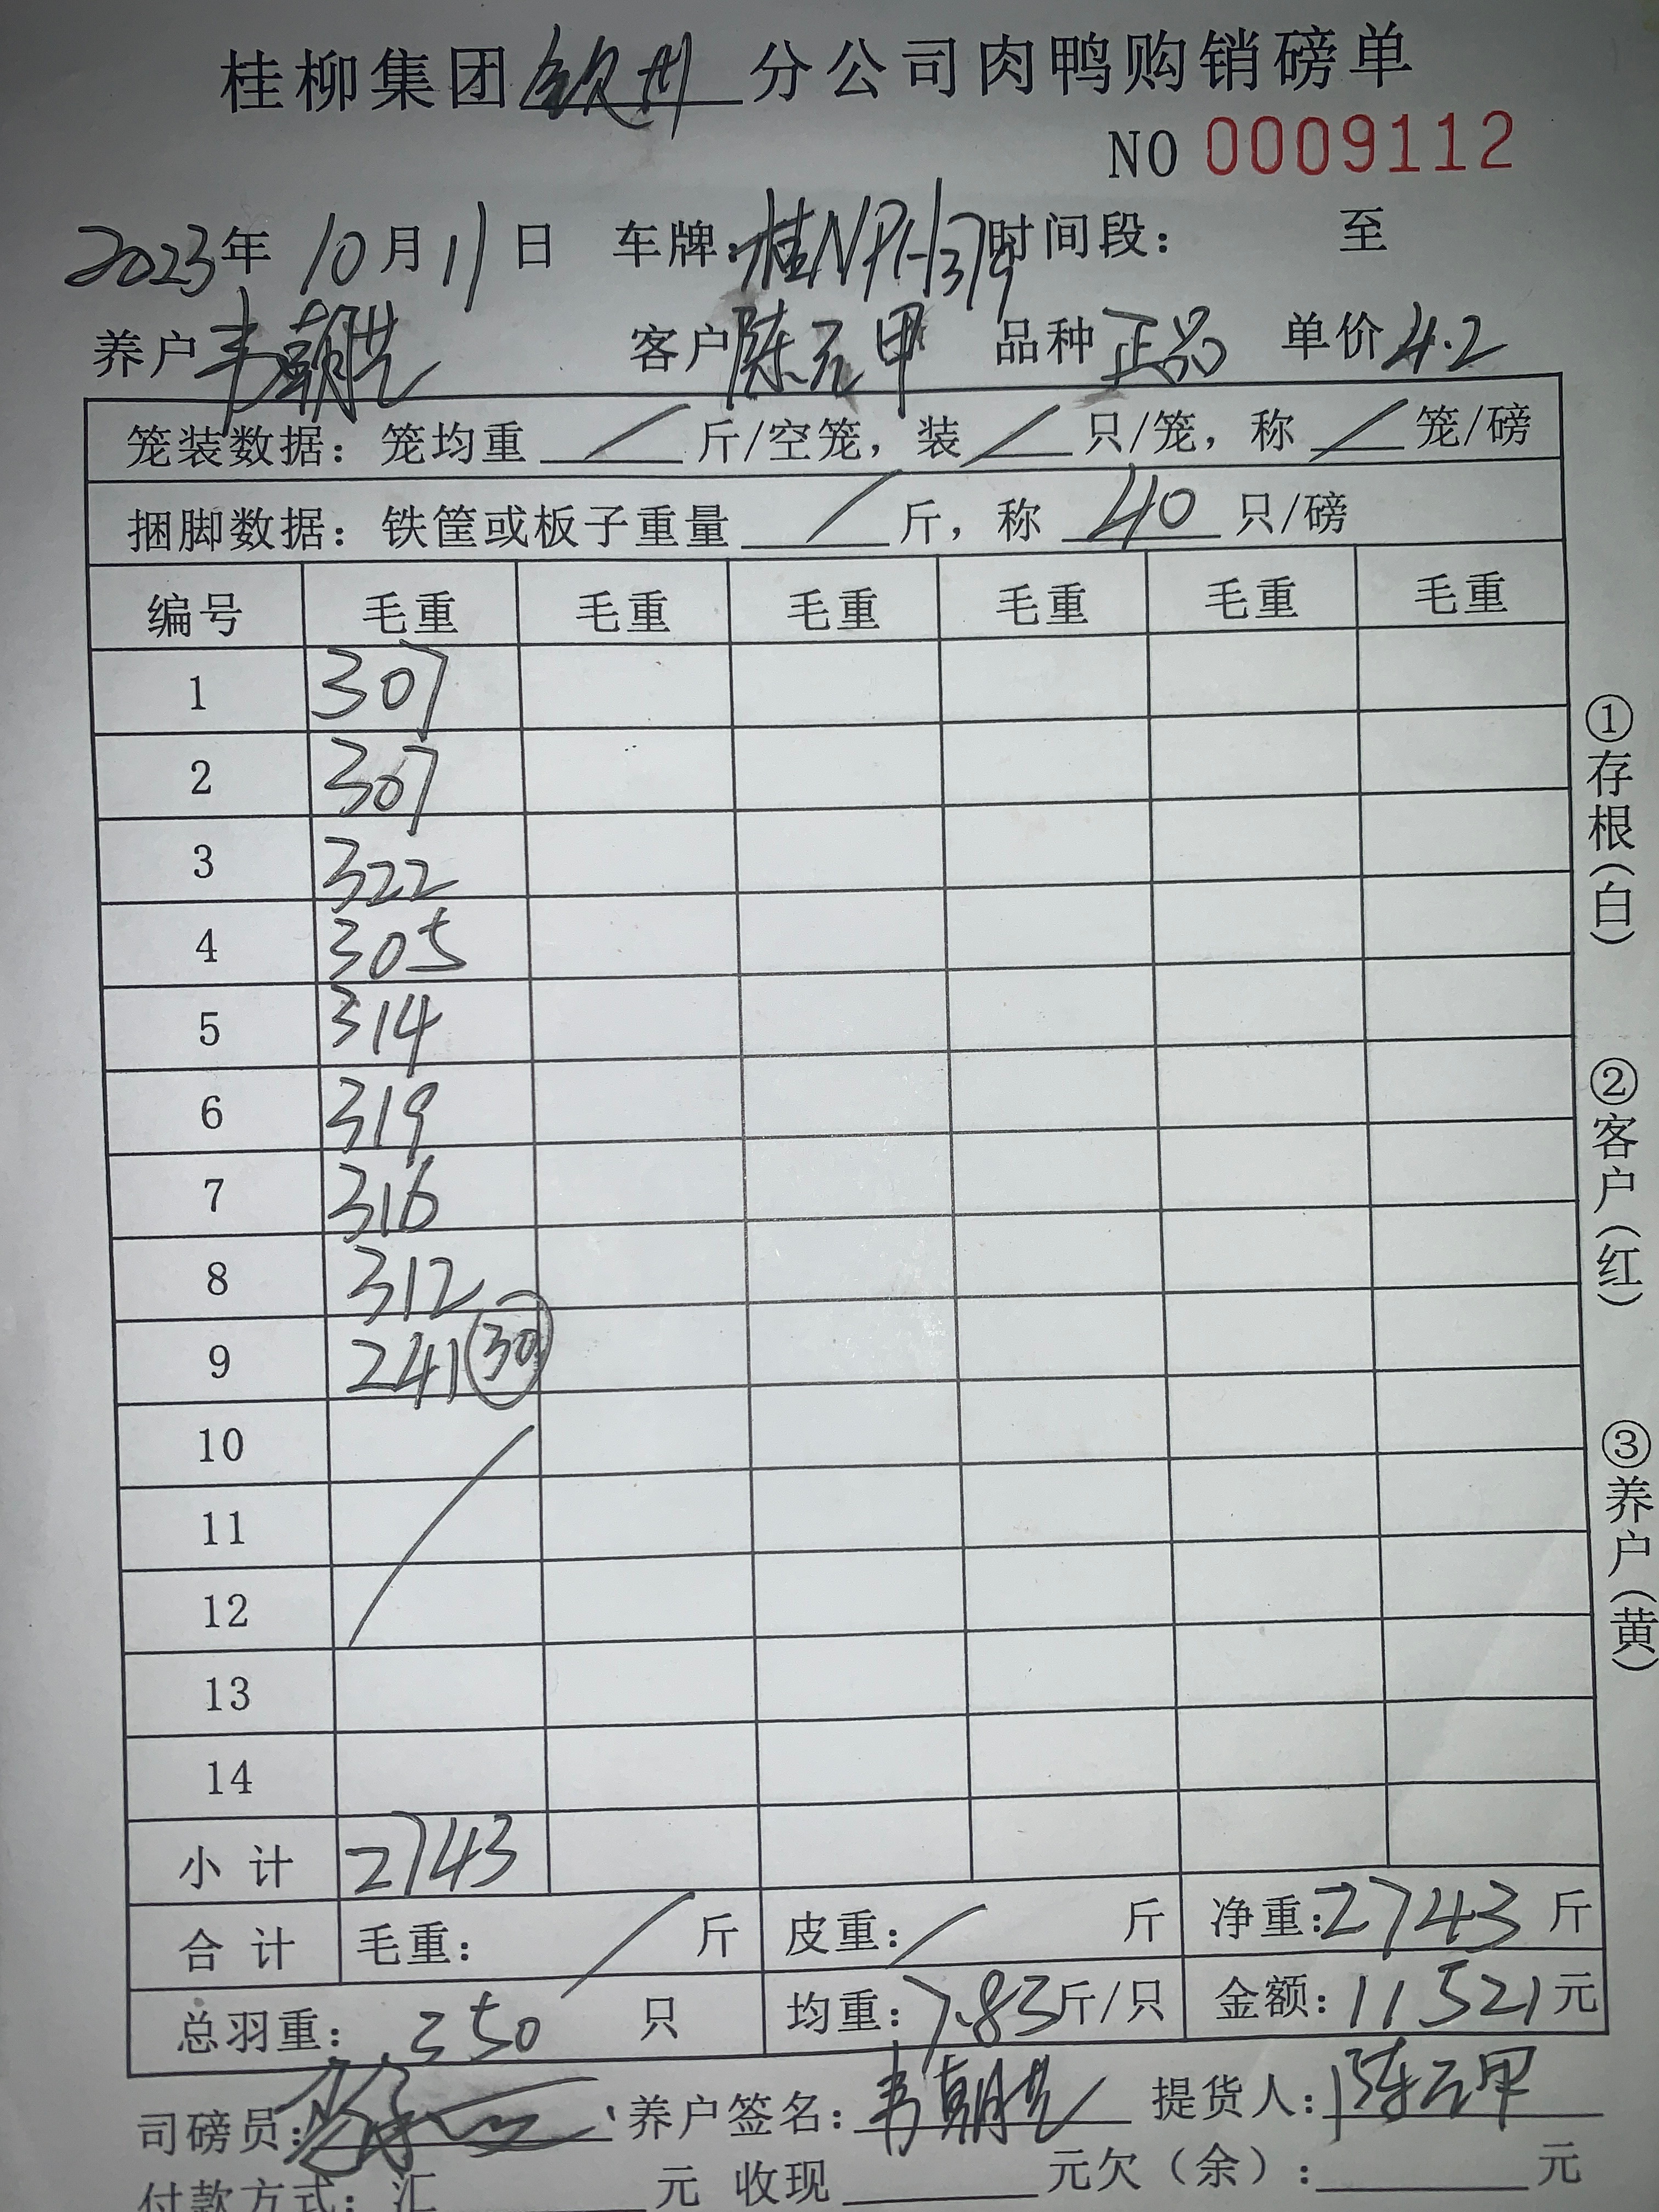 桂柳集团钦州分公司肉鸭购销磅单
NO 0009112
2023年 10月 11日 车牌:桂NPH374 时间段: 至
养户韦朝 客户陈元甲 品种正品 单价4.2
笼装数据:笼均重 / 斤/空笼,装 / 只/笼,称 / 笼/磅
捆脚数据:铁筐或板子重量 / 斤,称 40 只/磅
编号 毛重 毛重 毛重 毛重 毛重 毛重
1 307
2 307
3 322
4 305
5 314
6 319
7 316
8 312
9 241 30
10
11
12
13
14
小计 2743
合计 毛重: / 斤 皮重: / 斤 净重:2743斤
总羽重: 350 只 均重:7.83斤/只 金额:11521元
司磅员: 养户签名:韦朝 提货人:陈元甲
付款方式:汇 元 收现 元欠(余): 元
①存根(白)
②客户(红)
③养户(黄)